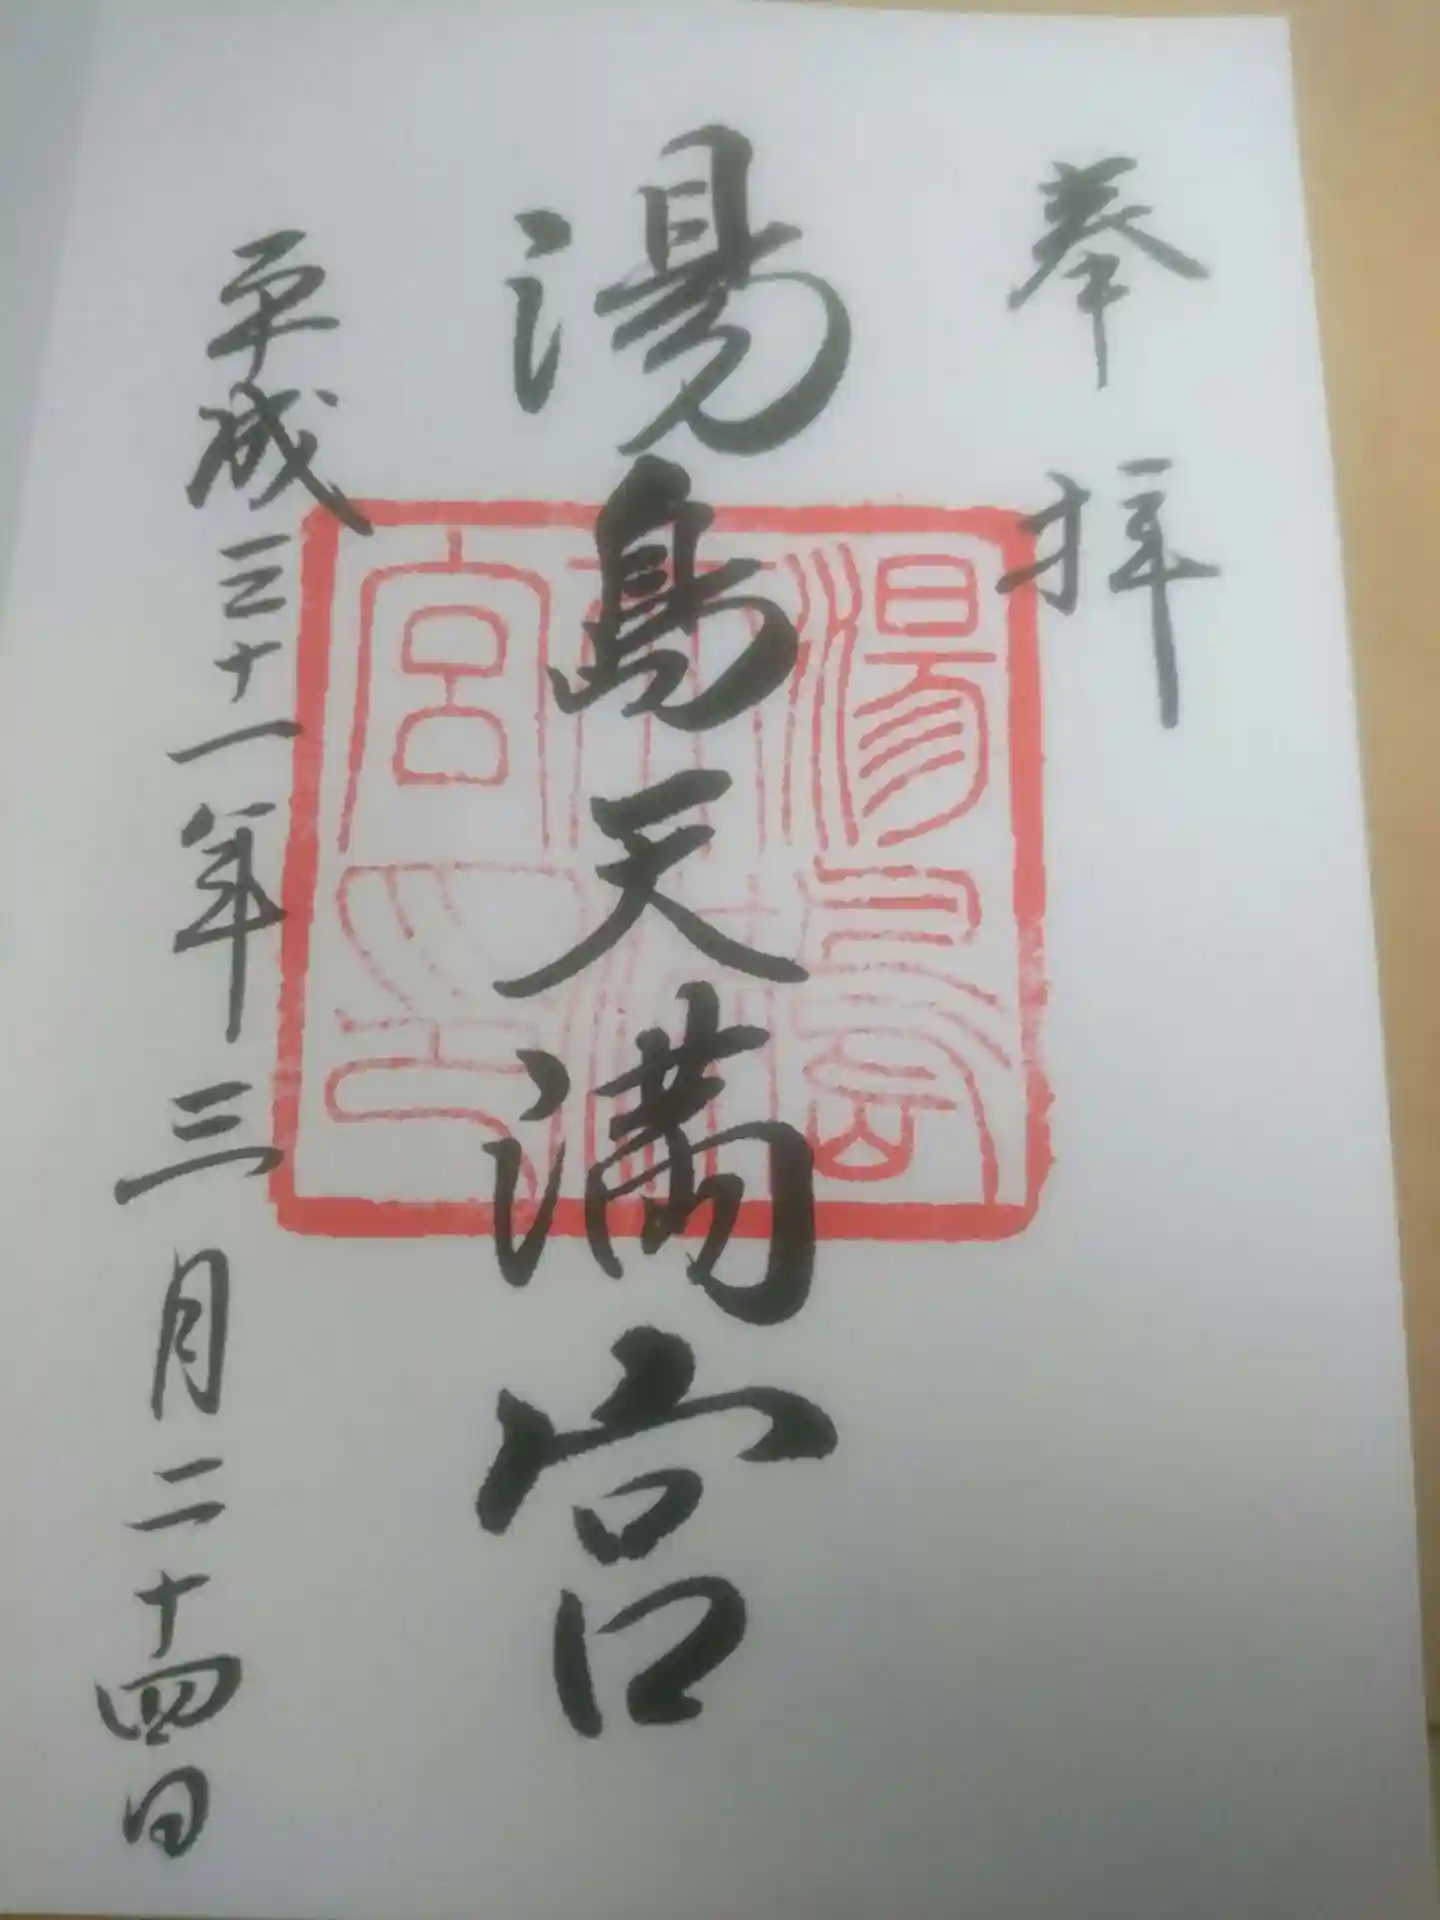 奉拝
湯島天満宮
湯島天満宮印
平成三十一年三月二十四日